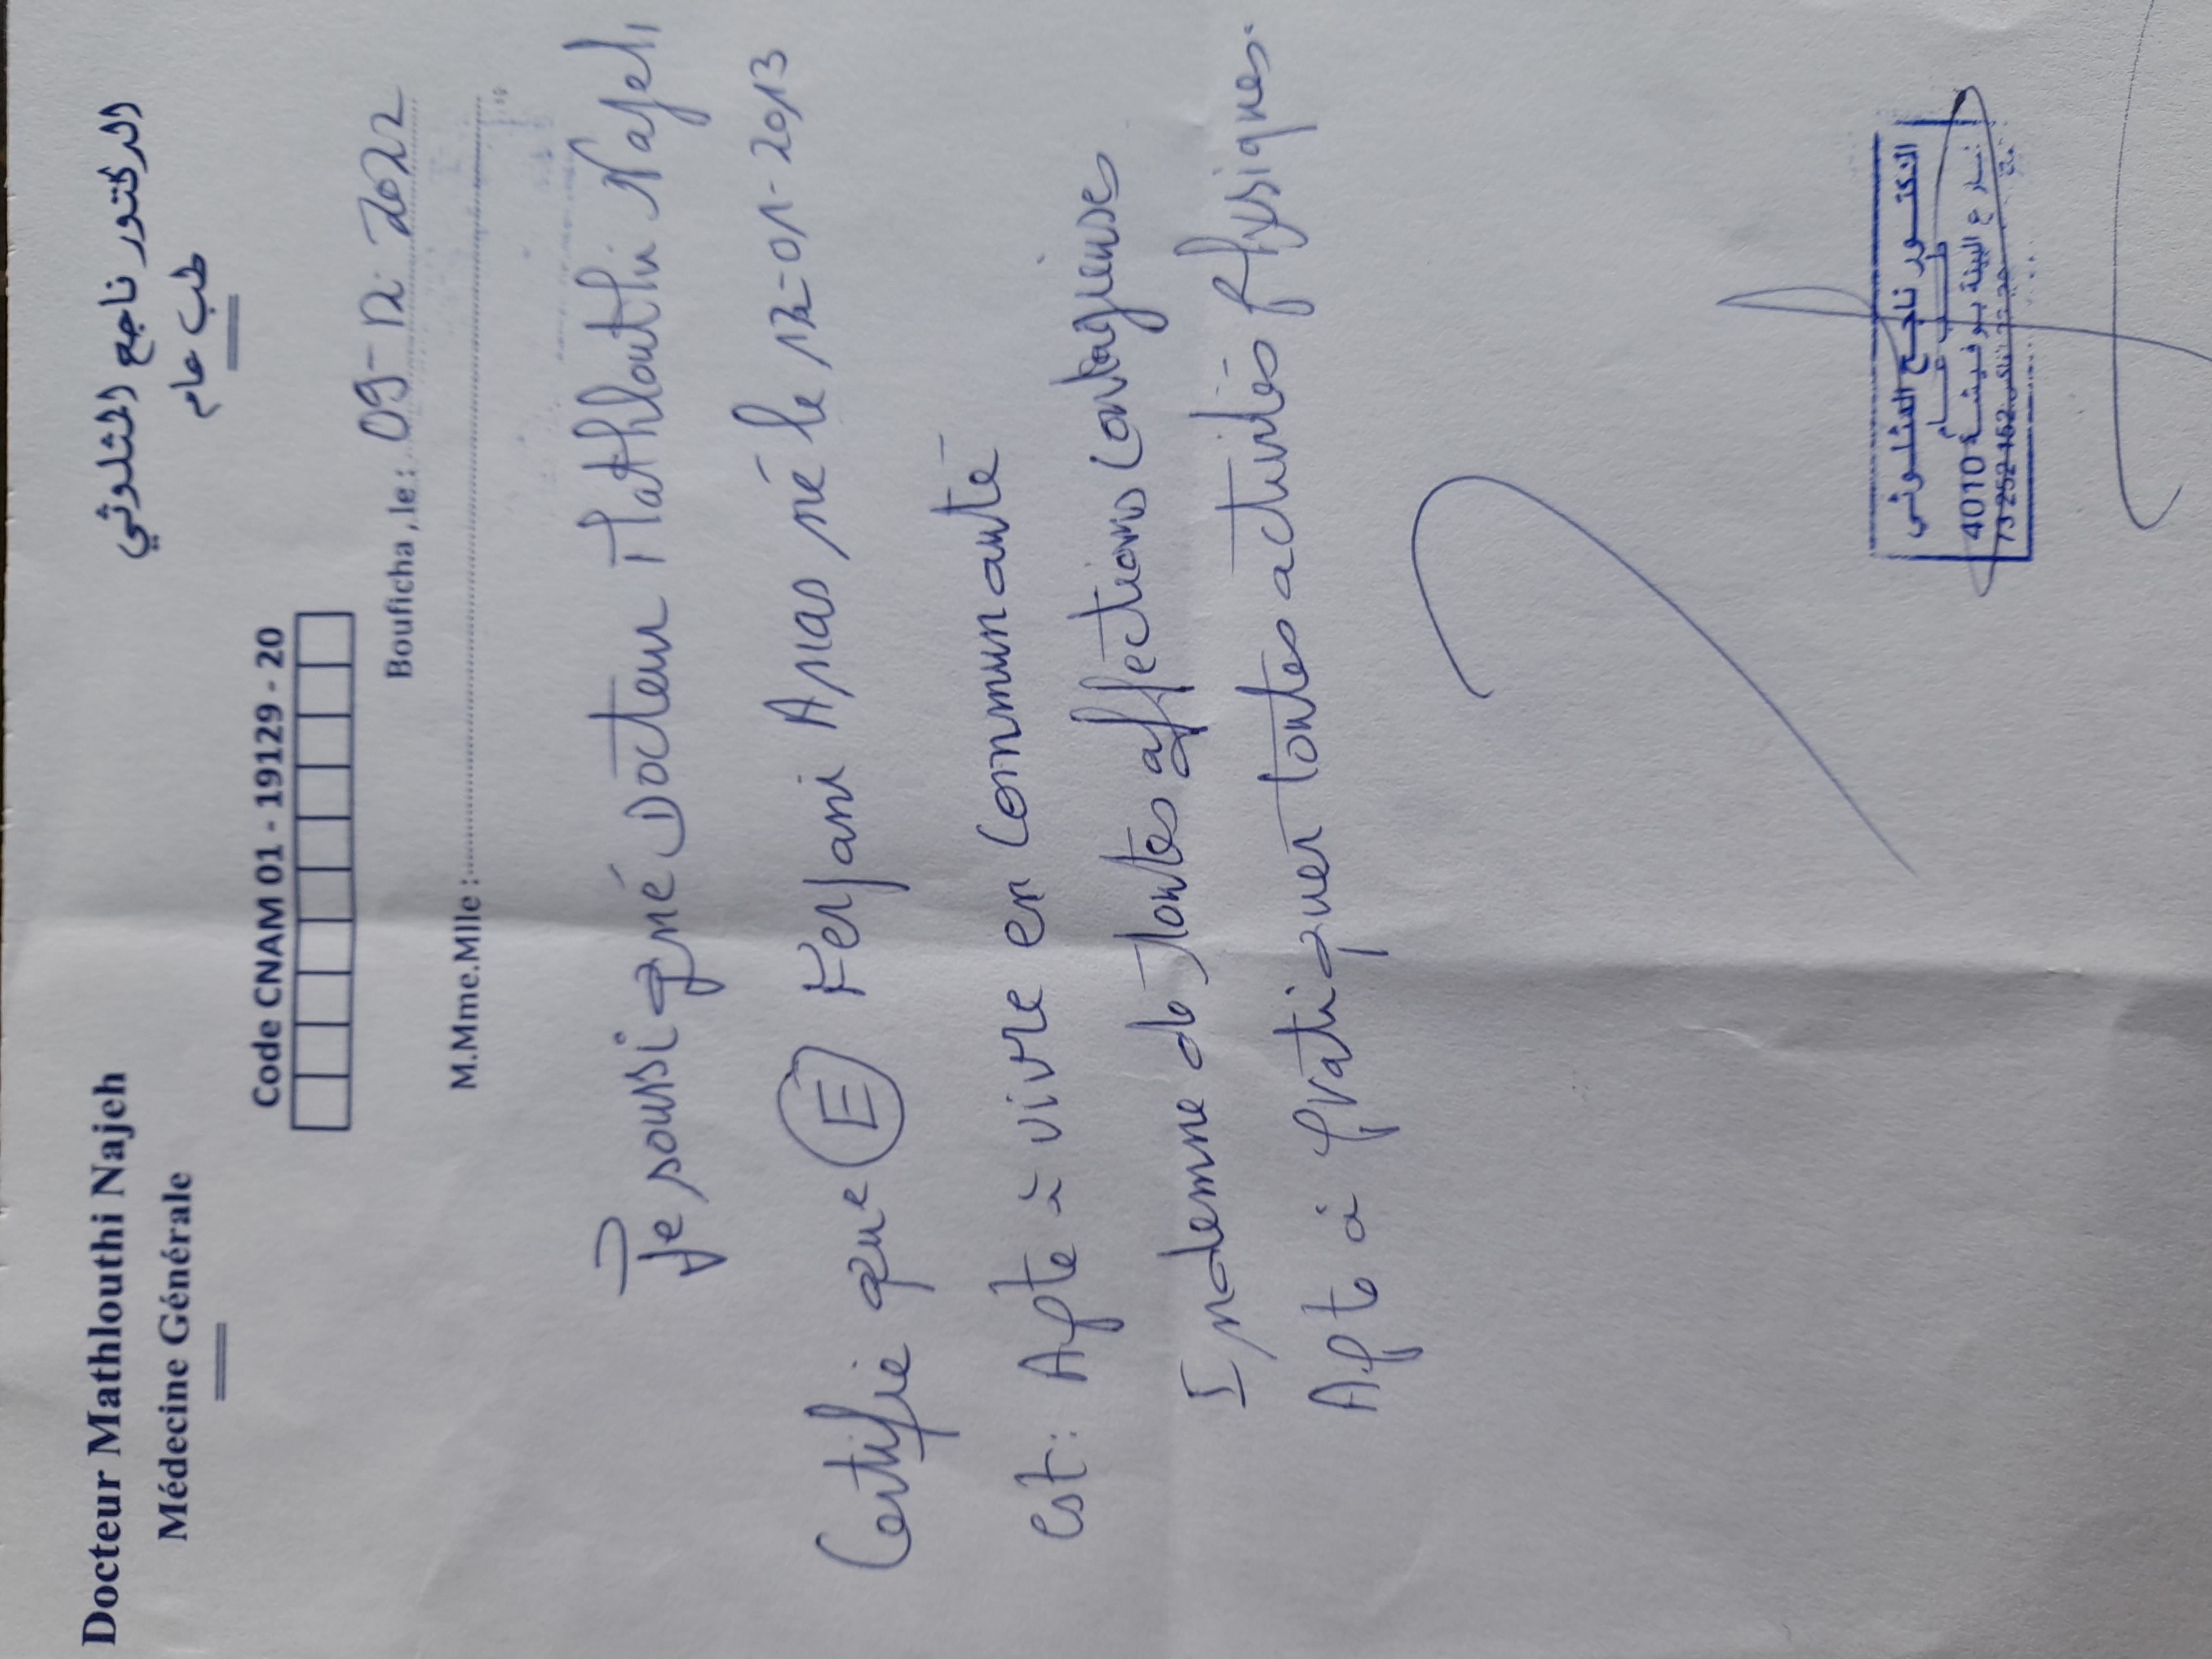 Docteur Mathlouthi Najeh
Médecine Générale
الدكتور ناجح المثلوثي
طب عام
Code CNAM 01 - 19129 - 20
Bouficha, le : 09-12-2022
M.Mme.Mlle :
Je soussigné Docteur Mathlouthi Najeh
Certifie que E Ferjani Anas né le 12-01-2013
est: Apte à vivre en Communauté
Indemne de toutes affections Contagieuses
Apte à pratiquer toutes activités physiques.
الدكتور ناجح المثلوثي
طب عام
شارع البيئة بوفيشة 4010
73 252 162